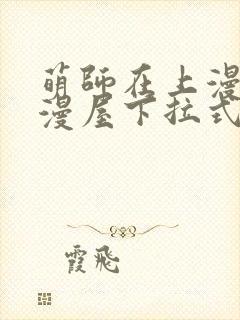 萌師在上漫
漫屋下拉式
霞飛